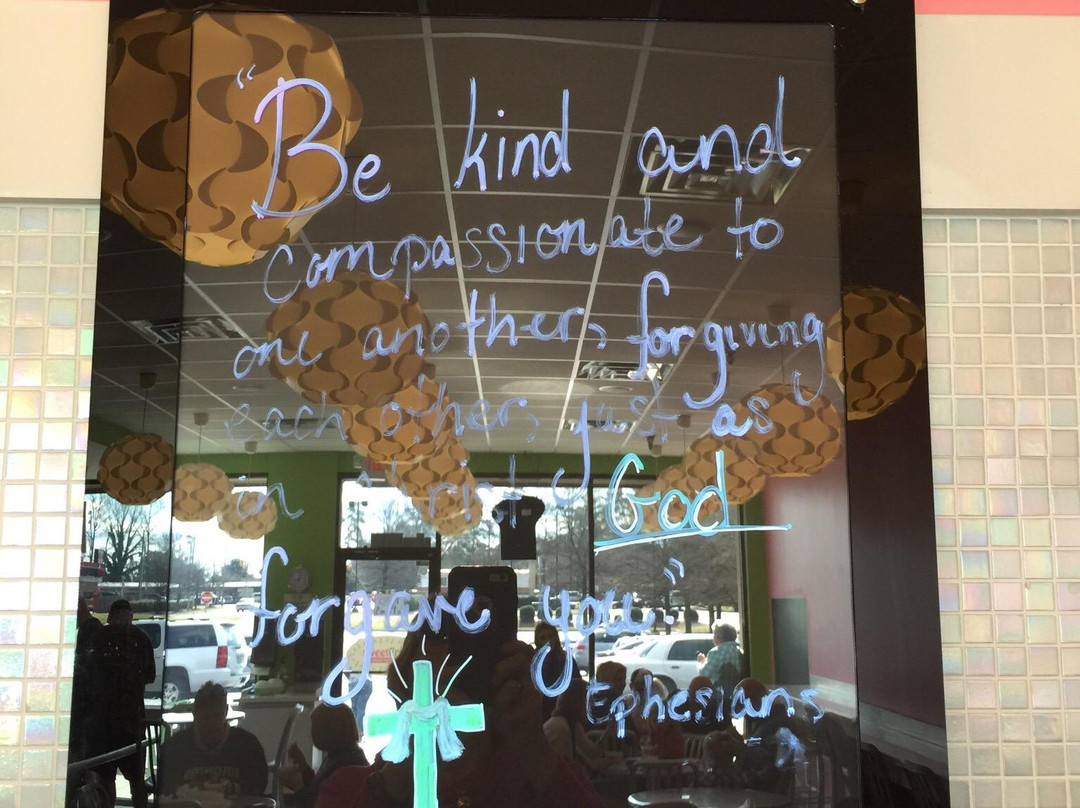 "Be kind and
compassionate to
one another, forgiving
each other, just as
in Christ God
forgave you."
Ephesians